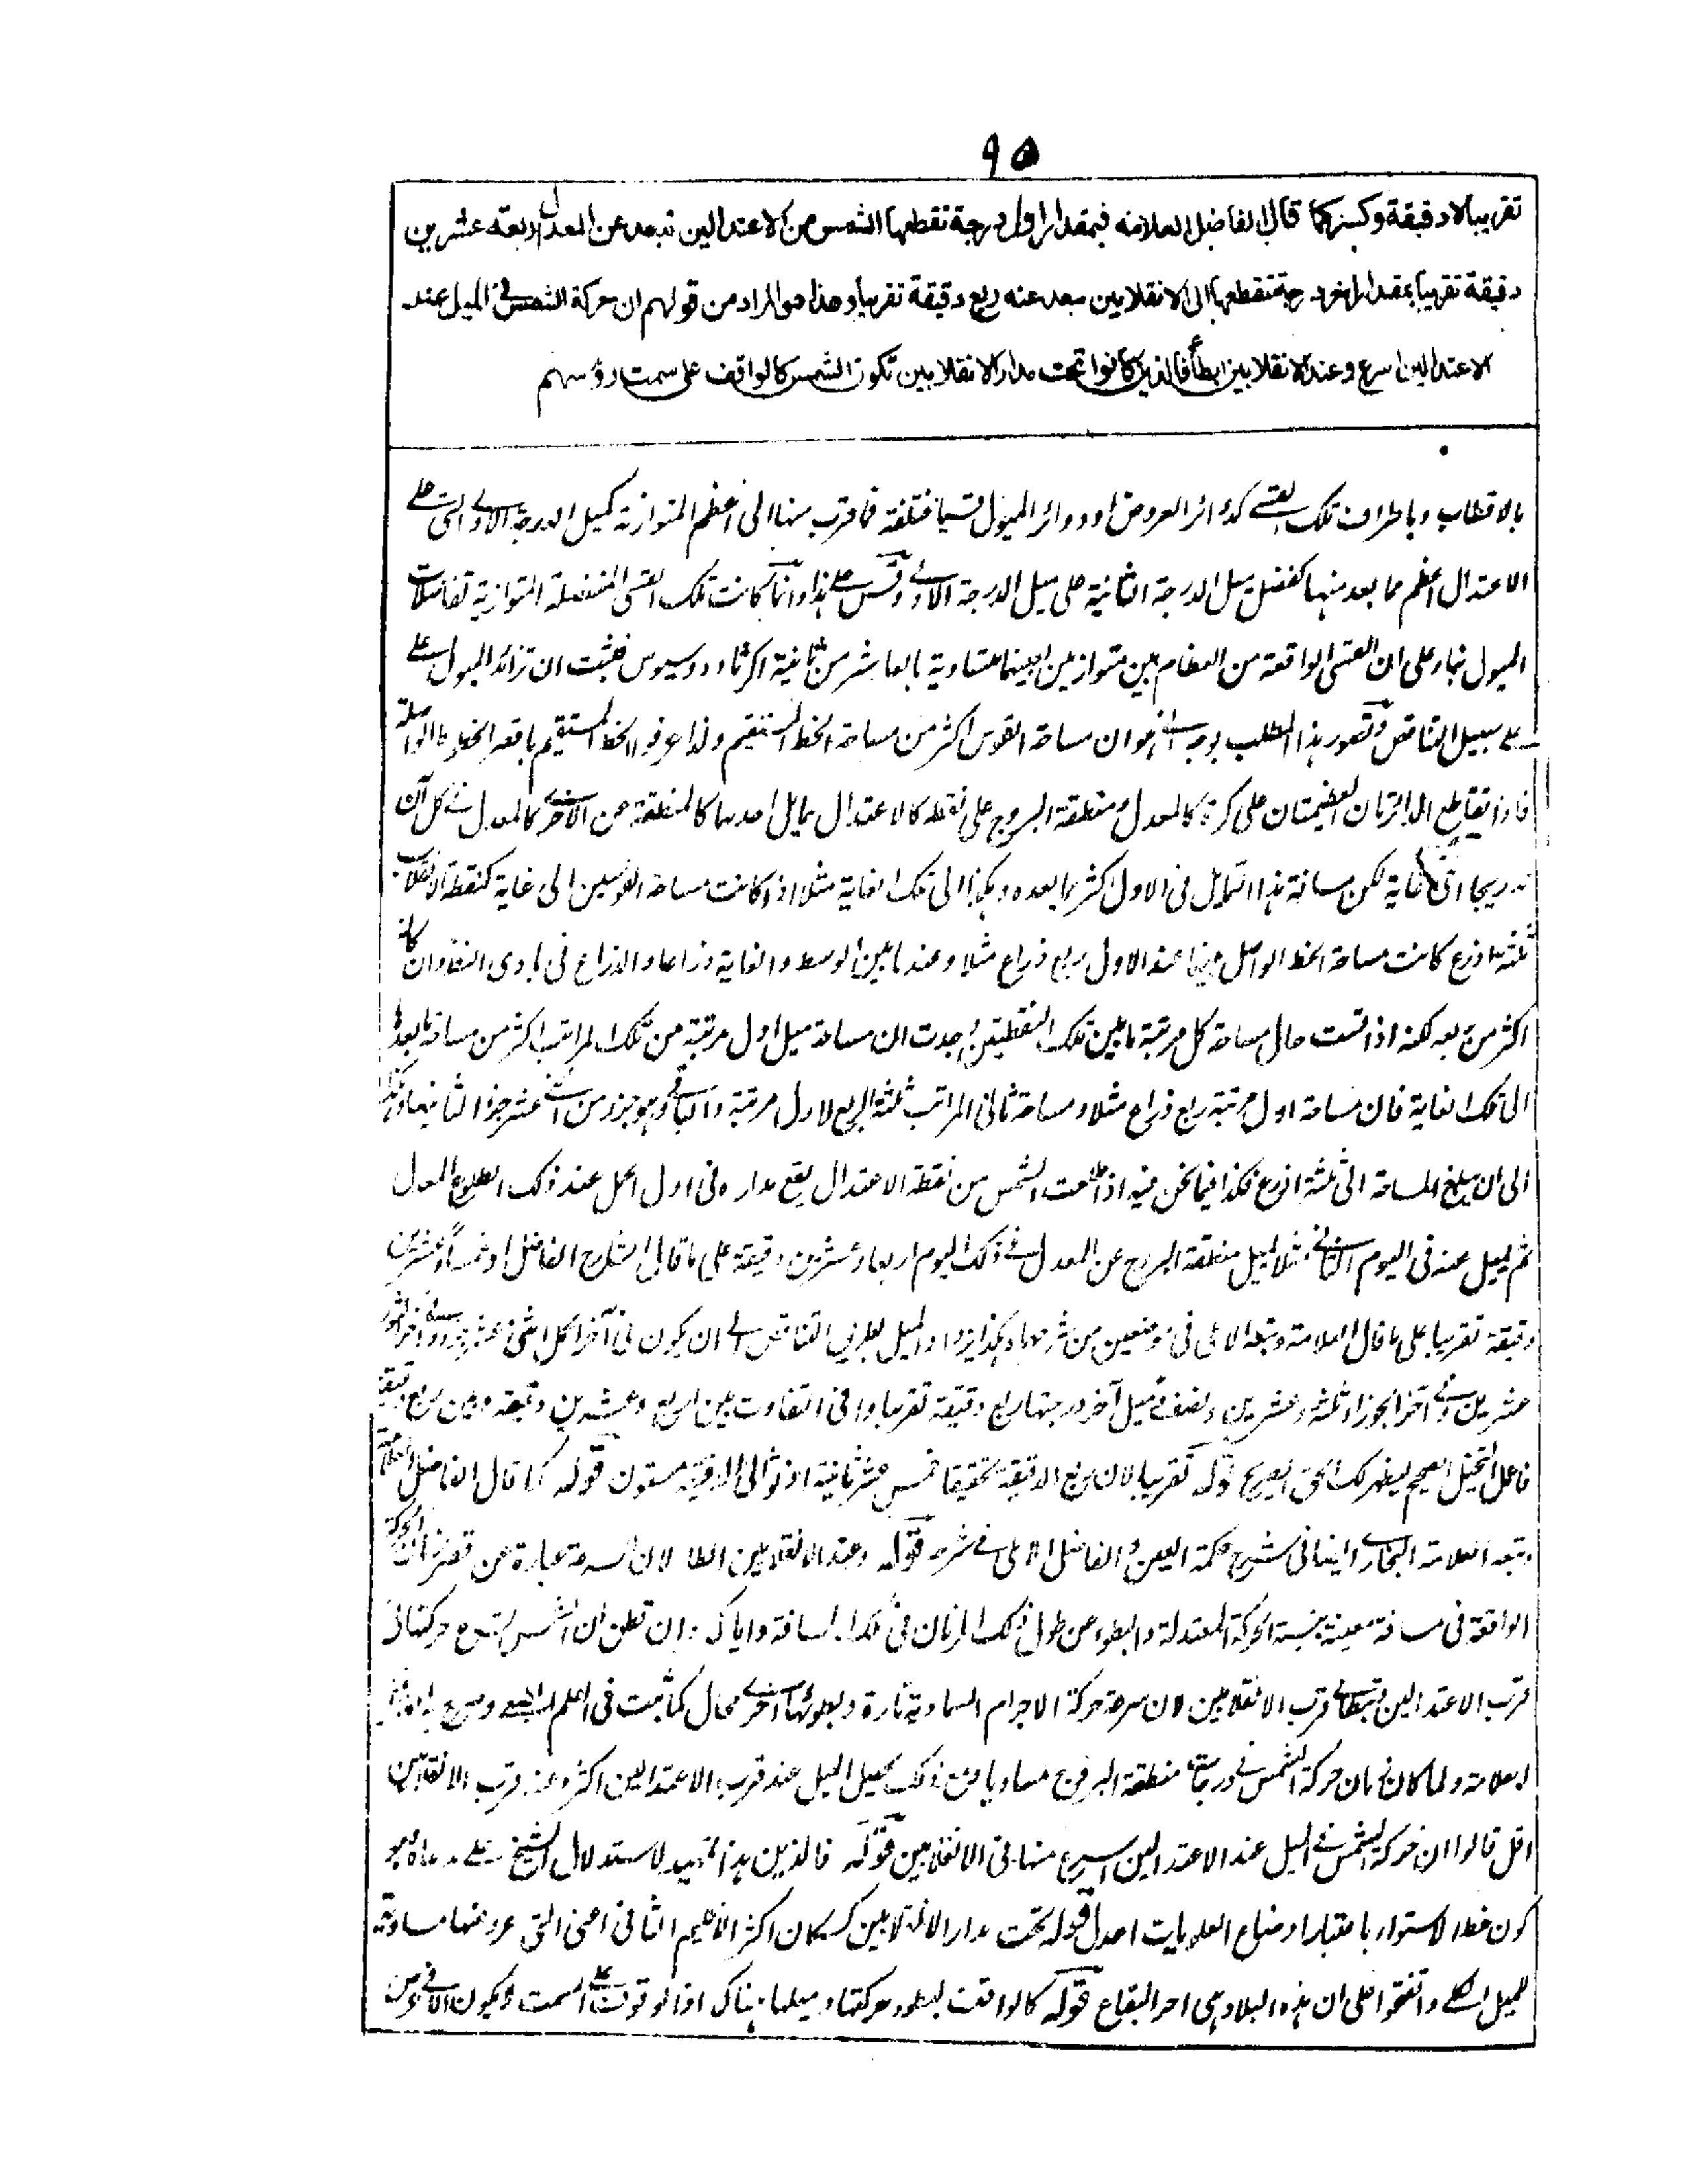 ٩٥
تقريبا الا دقيقة وكسر كما قال الفاضل العلامة فبمقدار اول درجة تقطعها الشمس من الاعتدالين تبعد عن المعدل اربعة عشرين
دقيقة تقريبا بمقدار اخر درجة تقطعها الى الانقلابين يبعد عنه ربع دقيقة تقريبا وهذا هو المراد من قولهم ان حركة الشمس في الميل عند
الاعتدالين اسرع وعند الانقلابين ابطأ فالذين كانوا تحت مدار الانقلابين تكون الشمس كالواقف على سمت رؤسهم
بالاقطاب وباطراف تلك القسي كدوائر العروض او دوائر الميول قسيا مختلفة فما قرب منها الى اعظم المتوازية كميل الدرجة الاولى التي على
الاعتدال اعظم مما بعد منها كفضل ميل الدرجة الثانية على ميل الدرجة الاولى وقس على هذا وانما كانت تلك القسي المنفصلة المتوازية تفاضلات
الميول بناء على ان القسي الواقعة من العظام بين متوازيين باعيينهما متساوية بالعاشر من ثانية اكر ثاوذوسيوس فثبت ان تزائد الميول على
على سبيل التناقص وتصور هذا المطلب بوجه اخر هو ان مساحة القوس اكثر من مساحة الخط المستقيم ولذا عرفوا الخط المستقيم باقصر الخطوط الواصلة
فاذا تقاطع الدائرتان العظيمتان على كرة كالمعدل ومنطقة البروج على نقطة كالاعتدال يمايل احدهما كالمنطقة عن الاخرى كالمعدل في كل آن
تدريجا الى غاية لكن مسافة هذا التمايل في الاول اكثر مما بعده وهكذا الى تلك الغاية مثلا اذا كانت مساحة القوسين الى غاية كنقطة الانقلاب
ثلثة اذرع كانت مساحة الخط الواصل بينهما عند الاول ربع ذراع مثلا وعند ما بين الوسط والغاية ذراعا والذراع في بادى النظر وان كان
اكثر من ربعه لكنه اذا قست حال مساحة كل مرتبة ما بين تلك النقطتين وجدت ان مساحة ميل اول مرتبة من تلك المراتب اكثر من مسافة ما بعدها
الى تلك الغاية فان مساحة اول مرتبة ربع ذراع مثلا ومساحة ثاني المراتب ثلثة الربع لاول مرتبة والباقي وهو جزء من اثنى عشر جزءا لثانيها وهكذا
الى ان يبلغ المساحة الى ثلثة اذرع فكذا فيما نحن فيه اذا طلعت الشمس من نقطة الاعتدال يقع مداره في اول الحمل عند ذلك الطلوع المعدل
ثم يميل عنه في اليوم الثاني مثلا لميل منطقة البروج عن المعدل في ذلك اليوم اربعا وعشرين دقيقة على ما قال الشارح الفاضل او خمسا وعشرين
دقيقة تقريبا على ما قال العلامة وتبعه الاملى في موضعين من شرحهما وهكذا يزداد الميل بطريق التناقص الى ان يكون في آخر الحمل اثنى عشر جزءا وفي آخر الثور
عشرين وفي آخر الجوزاء ثلثة وعشرين ونصف وميل آخر درجتها ربع دقيقة تقريبا وافي التفاوت بين اربع وعشرين دقيقة وبين ربع دقيقة
فاعمل التخيل الصحيح ليظهر لك الحق الصريح قوله تقريبا لان ربع الدقيقة تحقيقا خمس عشر ثانية اذ ثواني الدقيقة ستون قوله كما قال الفاضل العلامة
وتبعه العلامة البخاري ايضا في شرح حكمة العين والفاضل الاملى في شرحه قوله وعند الانقلابين ابطأ لان السرعة عبارة عن قصر زمان الحركة
الواقعة في مسافة معينة بنسبة الحركة المعتدلة والبطوء عن طول ذلك الزمان في تلك المسافة واياك وان تظن ان الشمس يسرع حركتها في
قرب الاعتدالين وتبطأ في قرب الانقلابين لان سرعة حركة الاجرام السماوية تارة وبطوئها اخرى محال كما ثبت في العلم الطبيعي وصرح به
العلامة ولما كان زمان حركة الشمس في درجات منطقة البروج مساويا ومع ذلك يحصل الميل عند قرب الاعتدالين اكثر وعند قرب الانقلابين
اقل قالوا ان حركة الشمس في الميل عند الاعتدالين اسرع منها في الانقلابين قوله فالذين هذا تمهيد لاستدلال الشيخ على مدعاه وهو
كون خط الاستواء باعتبار اوضاع العلويات اعدل قوله تحت مدار الانقلابين كسكان اكثر الاقليم الثاني اعنى التي عروضها مساوية
للميل الكلي واتفقوا على ان هذه البلاد هي احر البقاع قوله كالواقف لبطوء حركتها وميلها هناك اذا لو توقف على السمت ويكون الافي عرض